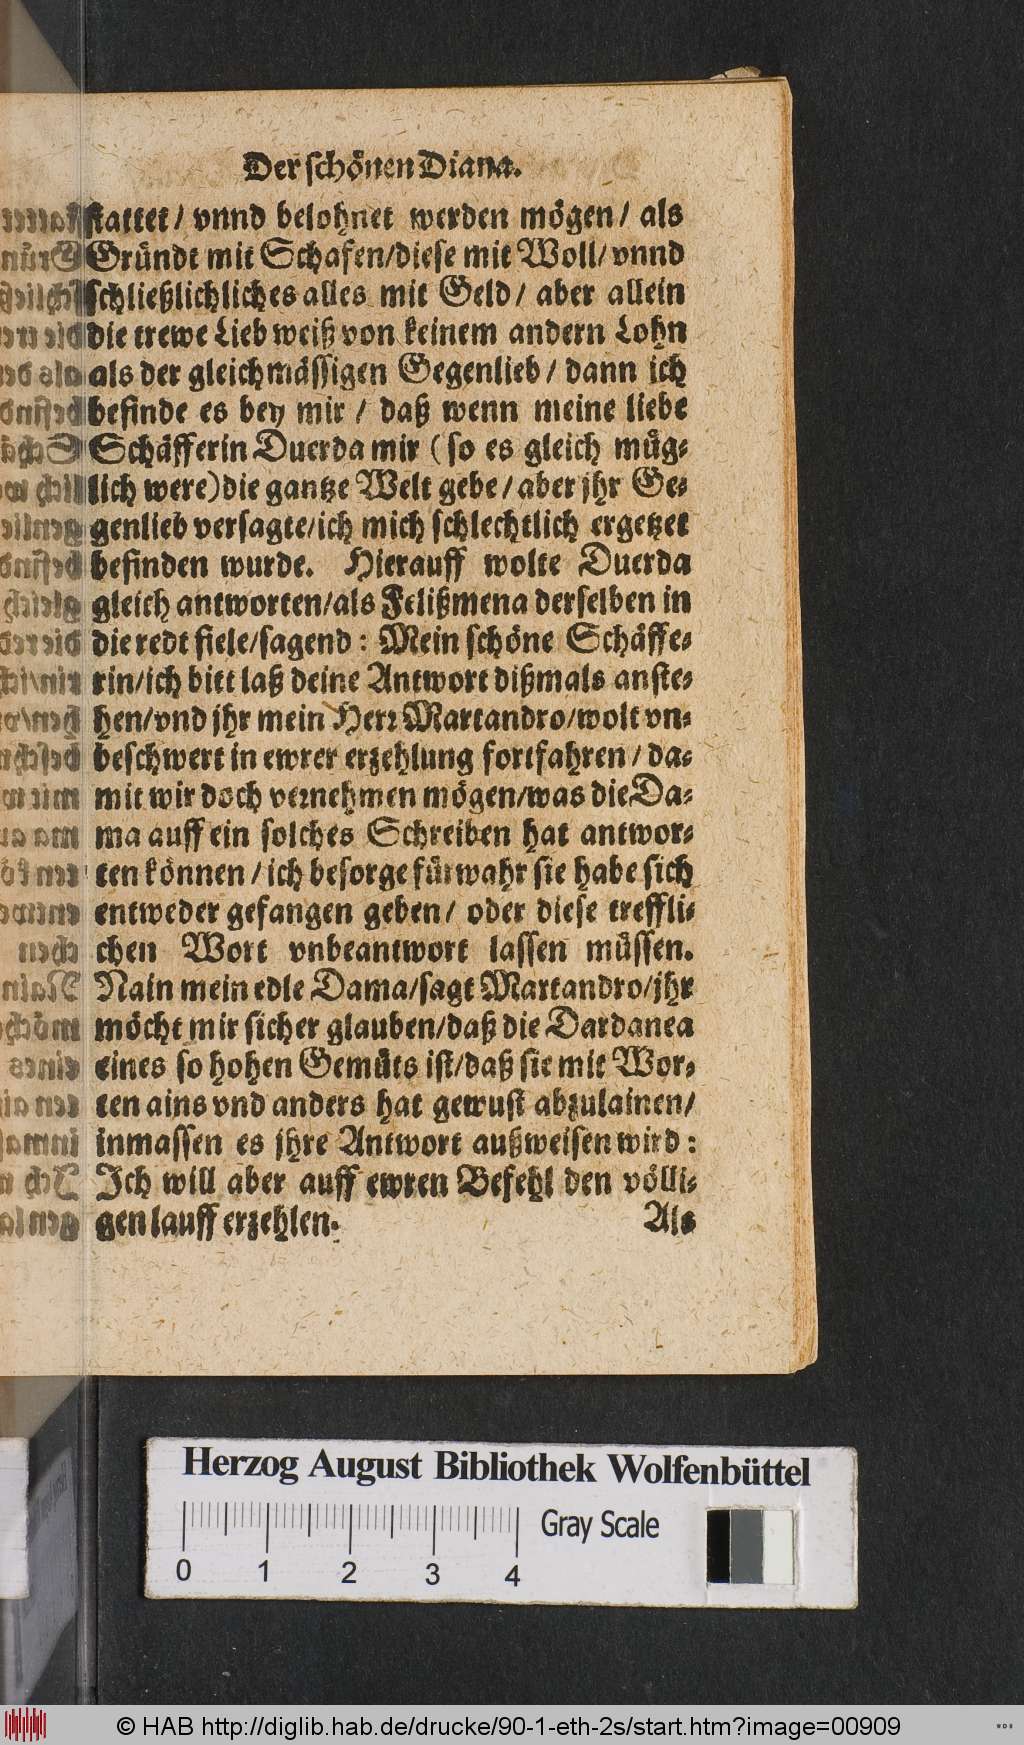 Der schönen Diana.
stattet / vnnd belohnet werden mögen / als
Gründt mit Schafen/diese mit Woll/ vnnd
schließlichliches alles mit Geld / aber allein
die trewe Lieb weiß von keinem andern Lohn
als der gleichmässigen Gegenlieb / dann ich
befinde es bey mir / daß wenn meine liebe
Schäfferin Duerda mir (so es gleich müg-
lich were) die gantze Welt gebe / aber jhr Ge-
genlieb versagte/ich mich schlechtlich ergetzet
befinden wurde. Hierauff wolte Duerda
gleich antworten/als Felißmena derselben in
die redt fiele/sagend: Mein schöne Schäffe-
rin/ich bitt laß deine Antwort dißmals anste-
hen/vnd jhr mein Herr Martandro/wolt vn-
beschwert in ewrer erzehlung fortfahren / da-
mit wir doch vernehmen mögen/was die Da-
ma auff ein solches Schreiben hat antwor-
ten können / ich besorge fürwahr sie habe sich
entweder gefangen geben/ oder diese treffli-
chen Wort vnbeantwort lassen müssen.
Nain mein edle Dama/sagt Martandro/jhr
möcht mir sicher glauben/daß die Dardanea
eines so hohen Gemüts ist/daß sie mit Wor-
ten ains vnd anders hat gewust abzulainen/
inmassen es jhre Antwort außweisen wird:
Ich will aber auff ewren Befehl den völli-
gen lauff erzehlen.
Als
Herzog August Bibliothek Wolfenbüttel
Gray Scale
0 1 2 3 4
© HAB http://diglib.hab.de/drucke/90-1-eth-2s/start.htm?image=00909